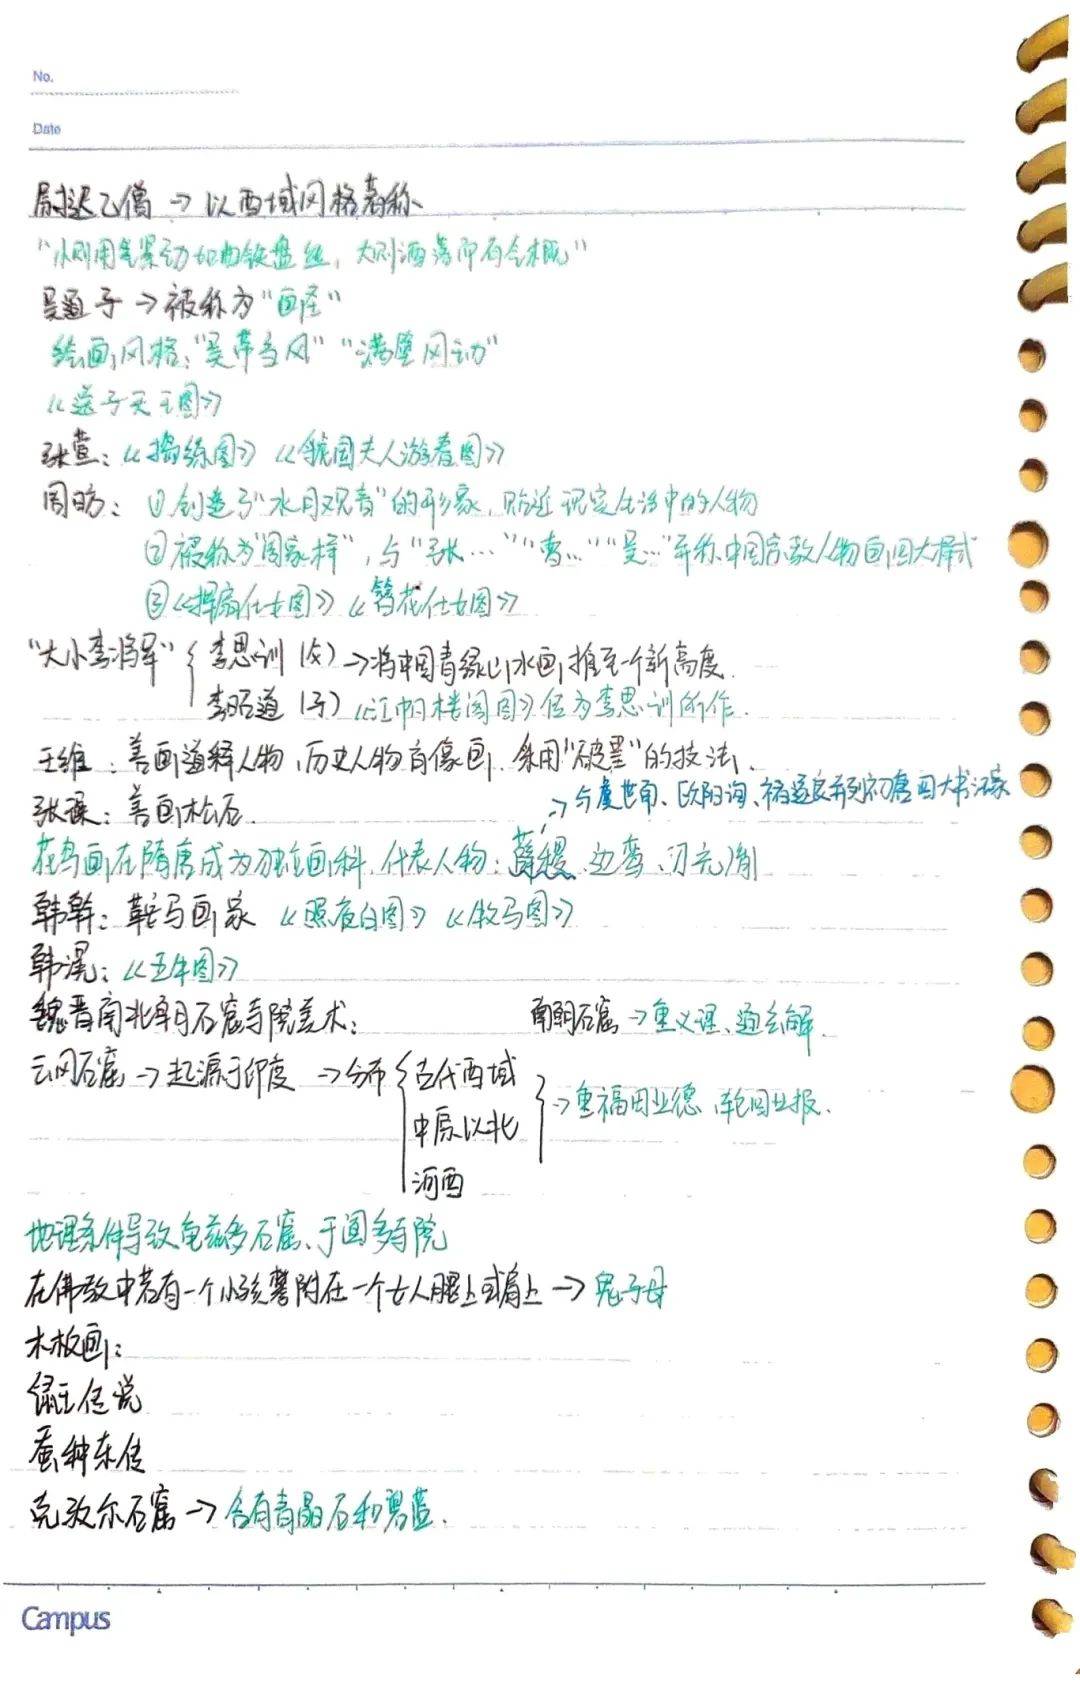 No.
Date
尉迟乙僧 → 以西域风格著称
"小则用笔紧劲如曲铁盘丝，大则洒落而有气概"
吴道子 → 被称为"画圣"
绘画风格："吴带当风" "满壁风动"
《送子天王图》
张萱：《捣练图》《虢国夫人游春图》
周昉：①创造了"水月观音"的形象，贴近现实生活中的人物
②被称为"周家样"，与"张…""曹…""吴…"并称中国宗教人物画四大样式
③《挥扇仕女图》《簪花仕女图》
"大小李将军" { 李思训（父）→将中国青绿山水画推至一个新高度.
李昭道（子）《江帆楼阁图》传为李思训所作.
王维：善画道释人物、历史人物肖像画. 采用"破墨"的技法.
张璪：善画松石. → 与虞世南、欧阳询、褚遂良并列初唐四大书法家
花鸟画在隋唐成为独立画科. 代表人物：薛稷、边鸾、刁光胤
韩幹：鞍马画家《照夜白图》《牧马图》
韩滉：《五牛图》
魏晋南北朝石窟寺院美术： 南朝石窟 → 重义理、通玄解.
云冈石窟 → 起源于印度 → 分布 { 古代西域
中原以北 } → 重福田业德、轮回业报.
河西
地理条件导致龟兹多石窟、于阗多寺院
在佛教中若有一个小孩攀附在一个女人腿上或肩上 → 鬼子母
木板画：
鼠王传说
蚕种东传
克孜尔石窟 → 含有青晶石和群蓝.
Campus